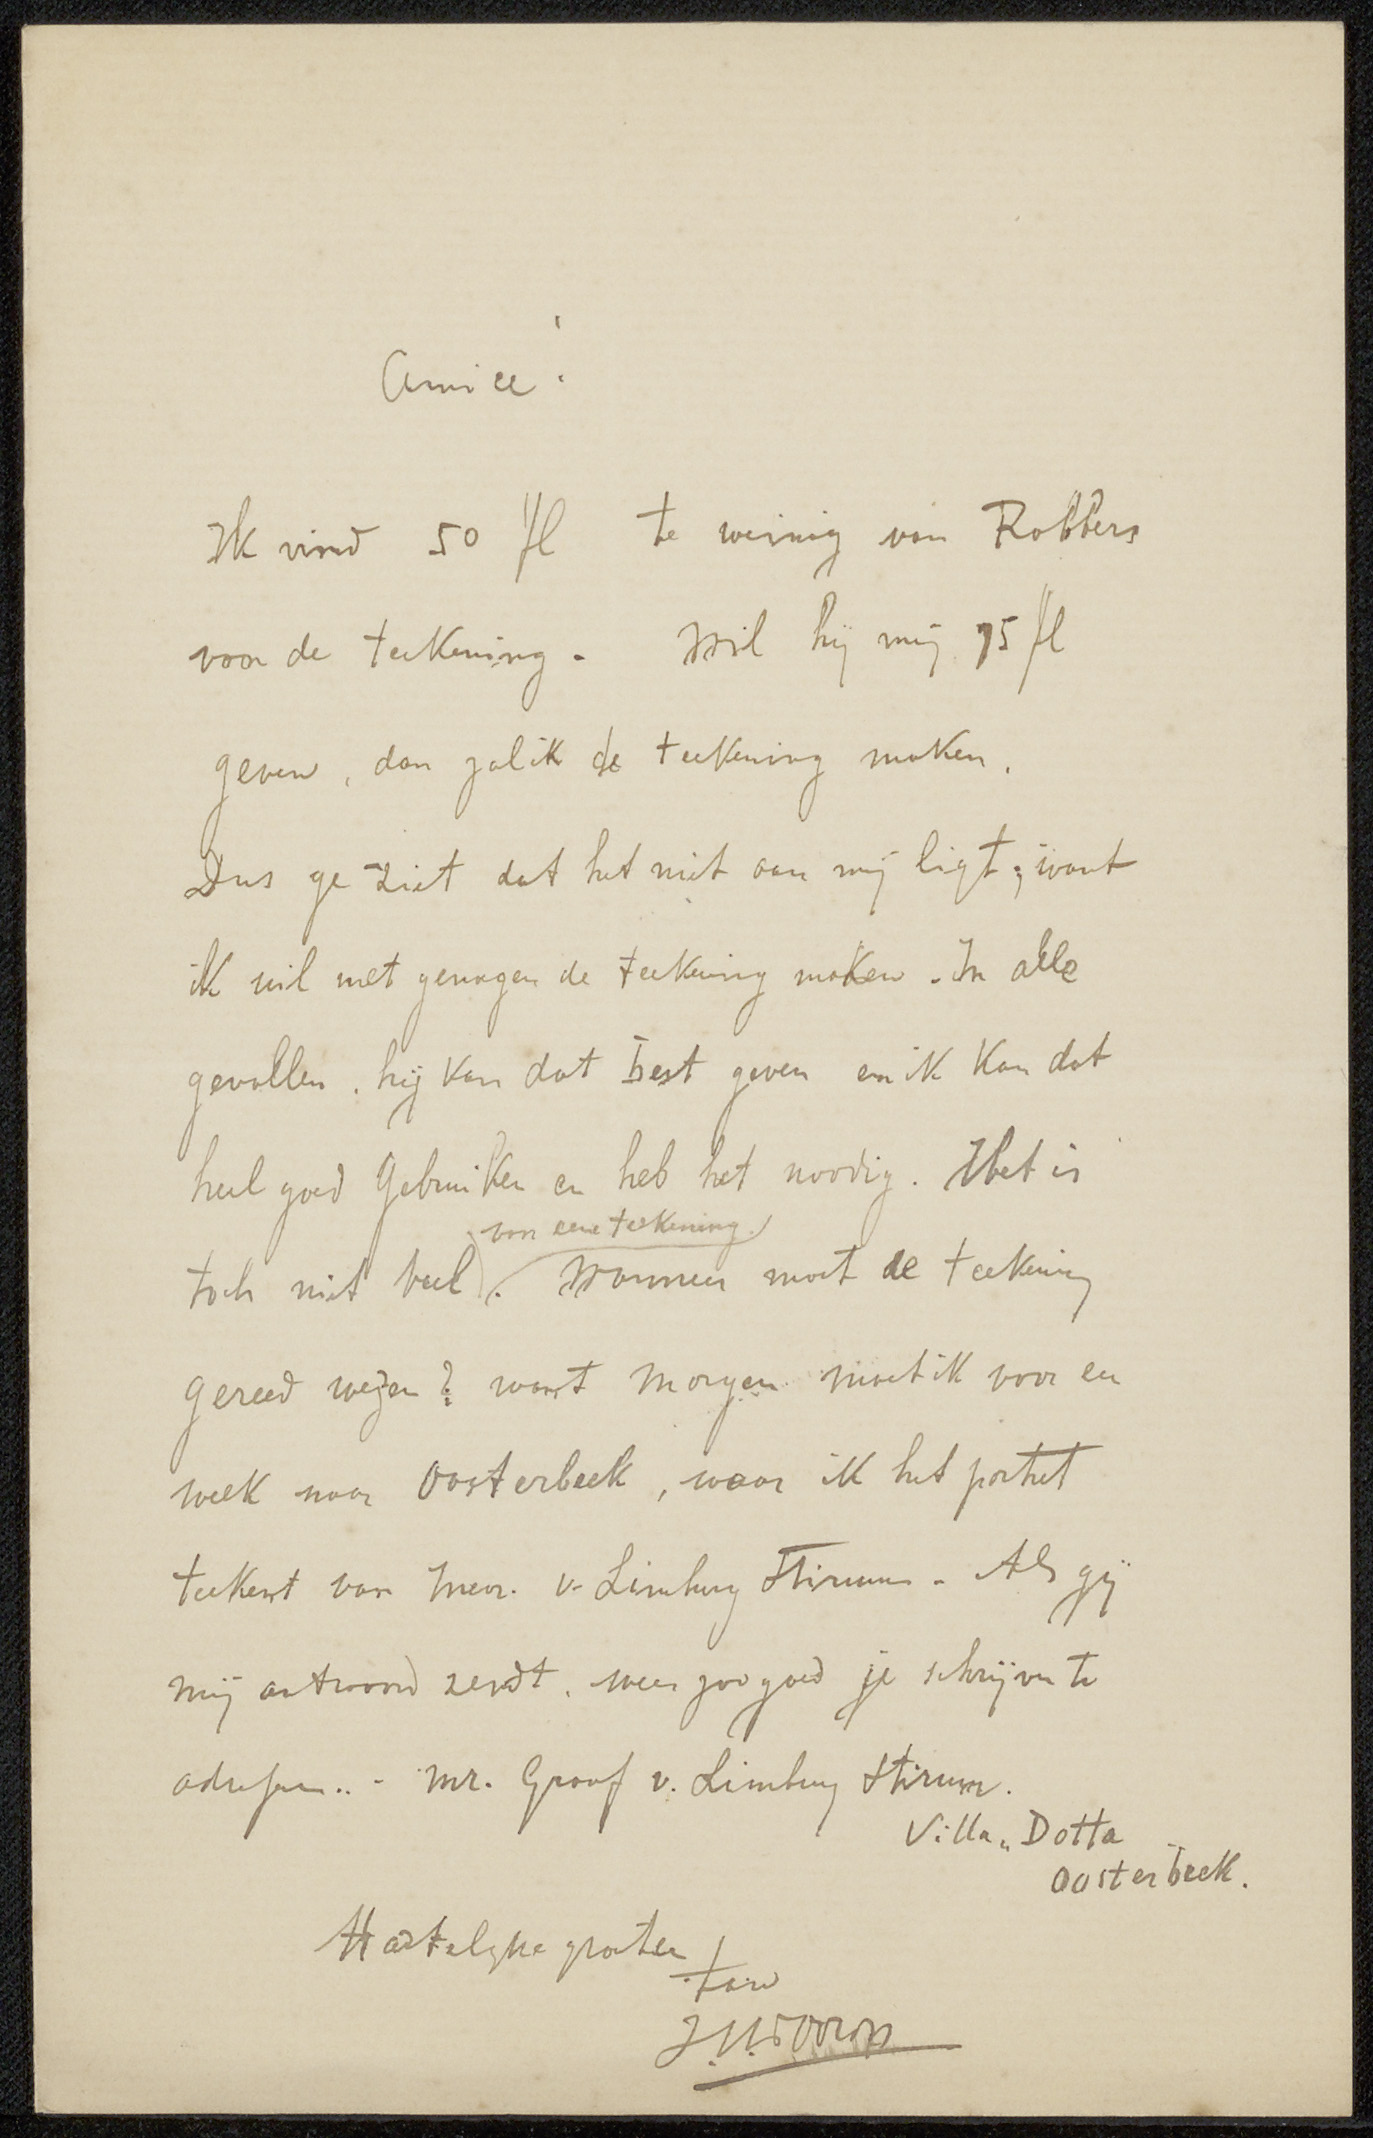 Amice!
Ik vind 50 fl te weinig van Robbers
voor de teekening. Wil hij mij 75 fl
geven, dan zal ik de teekening maken.
Dus ge ziet dat het niet aan mij ligt; want
ik wil met genoegen de teekening maken. In alle
gevallen, hij kan dat best geven en ik kan dat
heel goed gebruiken en heb het noodig. Het is
voor eene teekening
toch niet veel. Wanneer moet de teekening
gereed wezen? want morgen moet ik voor een
week naar Oosterbeek, waar ik het portret
teeken van Mevr. v. Limburg Stirum. Als gij
mij antwoord zendt, wees zoo goed je schrijven te
adresseren.. - Mr. Graaf v. Limburg Stirum.
Villa „Dotta
Oosterbeek.
Hartelyke groeten
tav
J.Th.Toorop